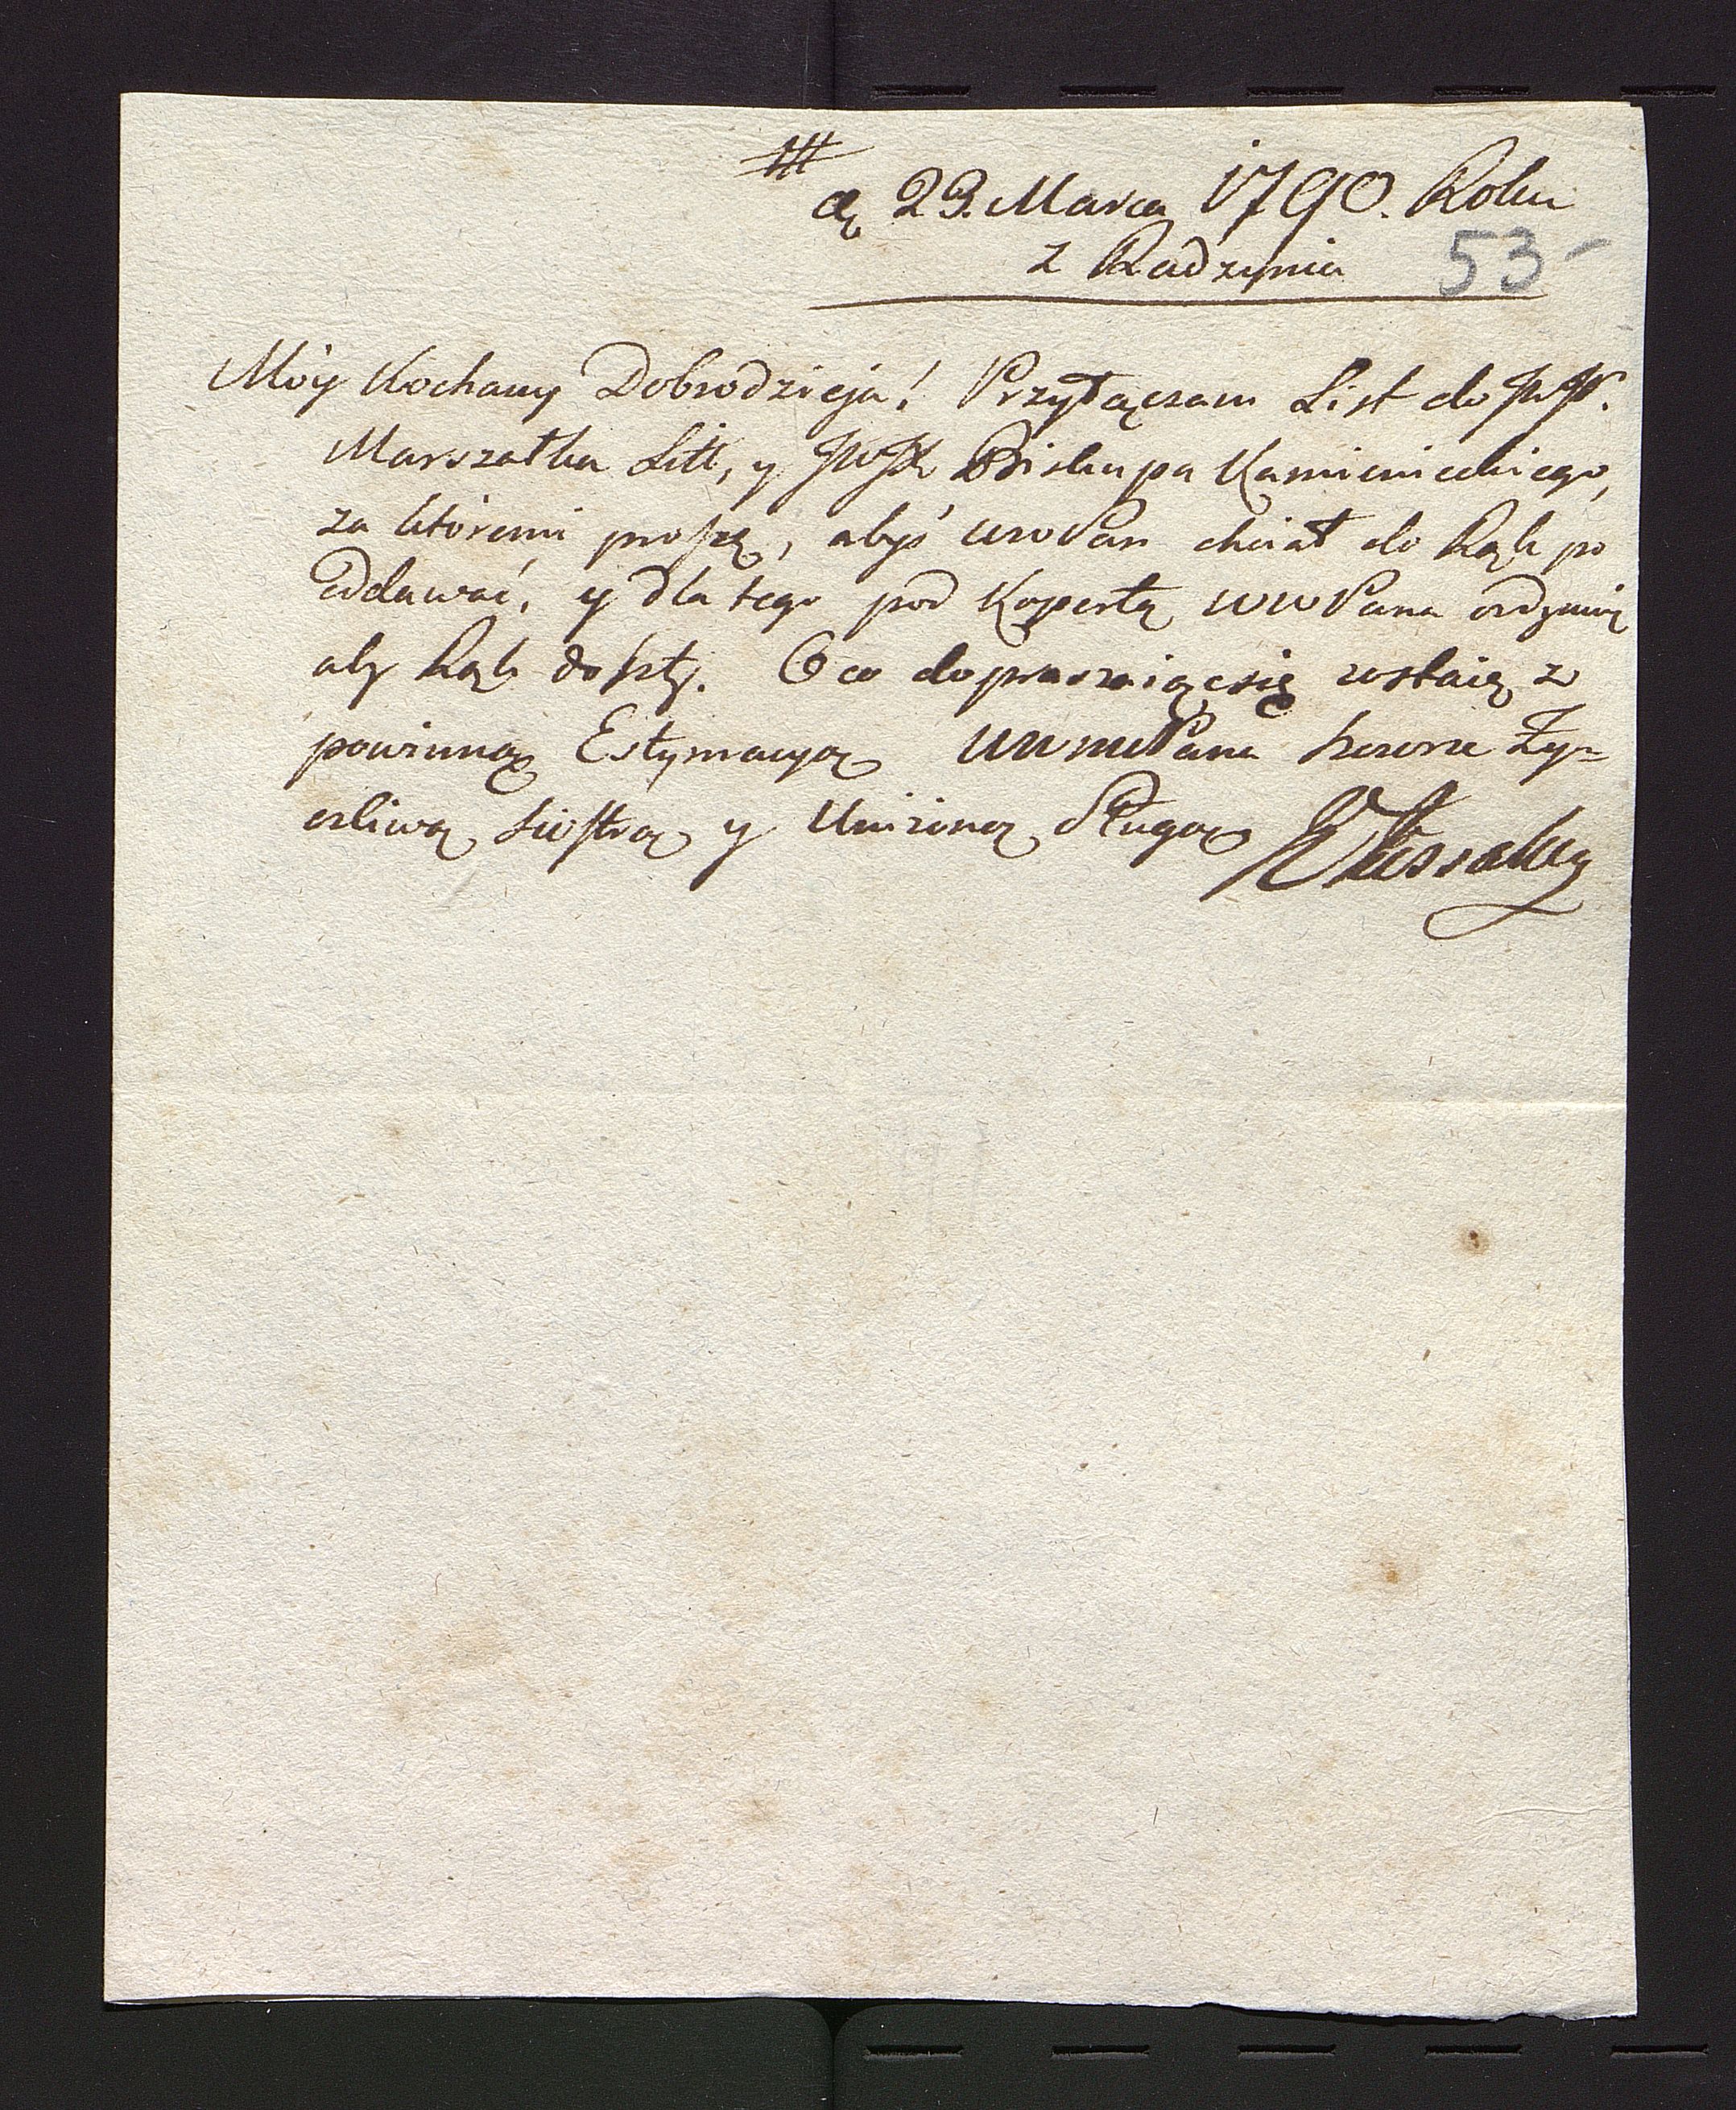 23. Marca 1790. Roku
z Radzynia 53
Móy Kochany Dobrodzieja! Przyłączam List do JW
Marszałka Litt, y JWJX Biskupa Kamienieckiego,
za któremi proszę, abyś WWPan chciał do Rąk po
oddawać, y dla tego pod Kopertą WWPana ordynuię
aby Rąk doszły. O co dopraszaiąc się zostaię z
powinną Estymacyą WWMPana szczerze Ży=
czliwą Siostrą y Uniżoną Sługą